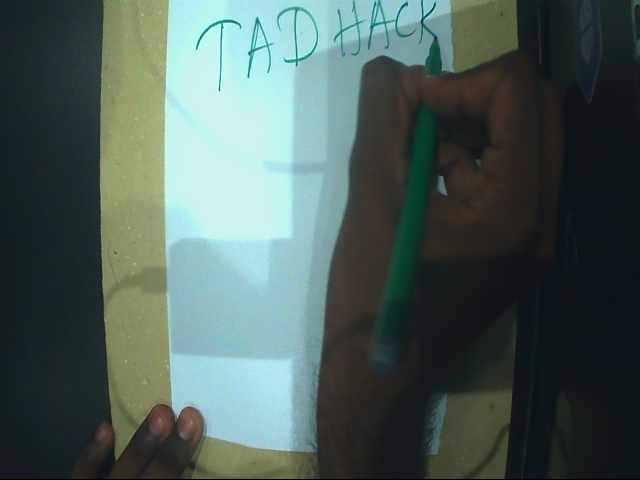 TAD HACK